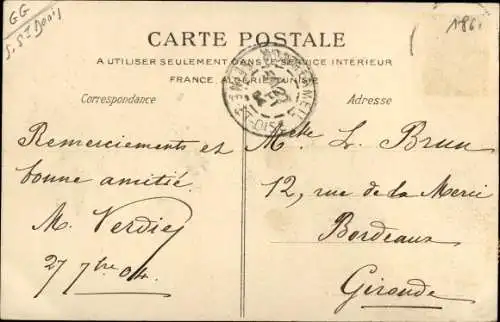 GG
S. St Denis
186
CARTE POSTALE
A UTILISER SEULEMENT DANS LE SERVICE INTÉRIEUR
FRANCE, ALGÉRIE, TUNISIE
Correspondance
Adresse
Remerciements et
bonne amitié.
M. Verdié
27 7bre 04.
Melle L. Brun
12, rue de la Merci
Bordeaux
Gironde